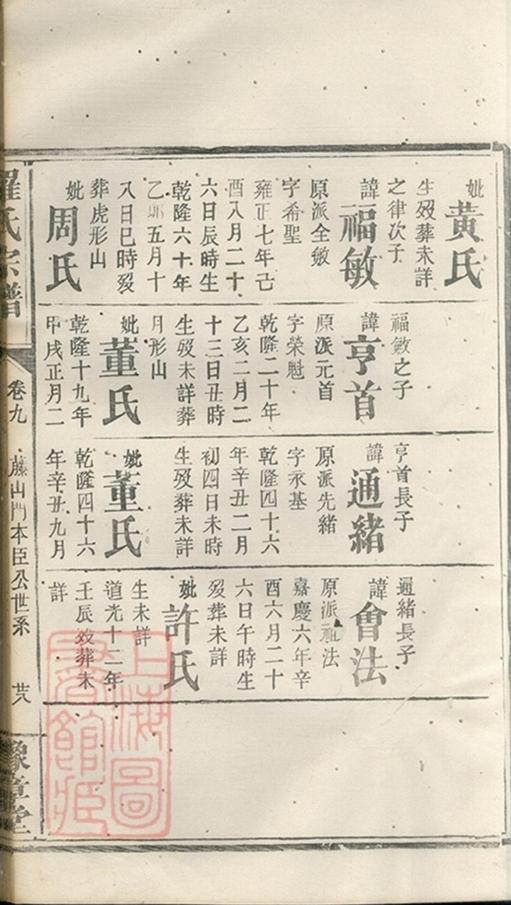 妣黃氏
生歿葬未詳
之律次子
諱福敏
原派全敏
字希聖
雍正七年己
酉八月二十
六日辰時生
乾隆六十年
乙卯五月十
八日巳時歿
葬虎形山
妣周氏
福敏之子
諱亨首
原派元首
字榮魁
乾隆二十年
乙亥二月二
十三日丑時
生歿未詳葬
月形山
妣董氏
乾隆十九年
甲戌正月二
亨首長子
諱通緒
原派先緒
字永基
乾隆四十六
年辛丑二月
初四日未時
生歿葬未詳
妣董氏
乾隆四十六
年辛丑九月
通緒長子
諱會法
原派祖法
字永
嘉慶六年辛
酉六月二十
六日午時生
歿葬未詳
妣許氏
生未詳
道光十二年
壬辰歿葬未
詳
羅氏宗譜
卷九
藤山門本臣公世系
廿八
豫章堂
上海圖
書館藏